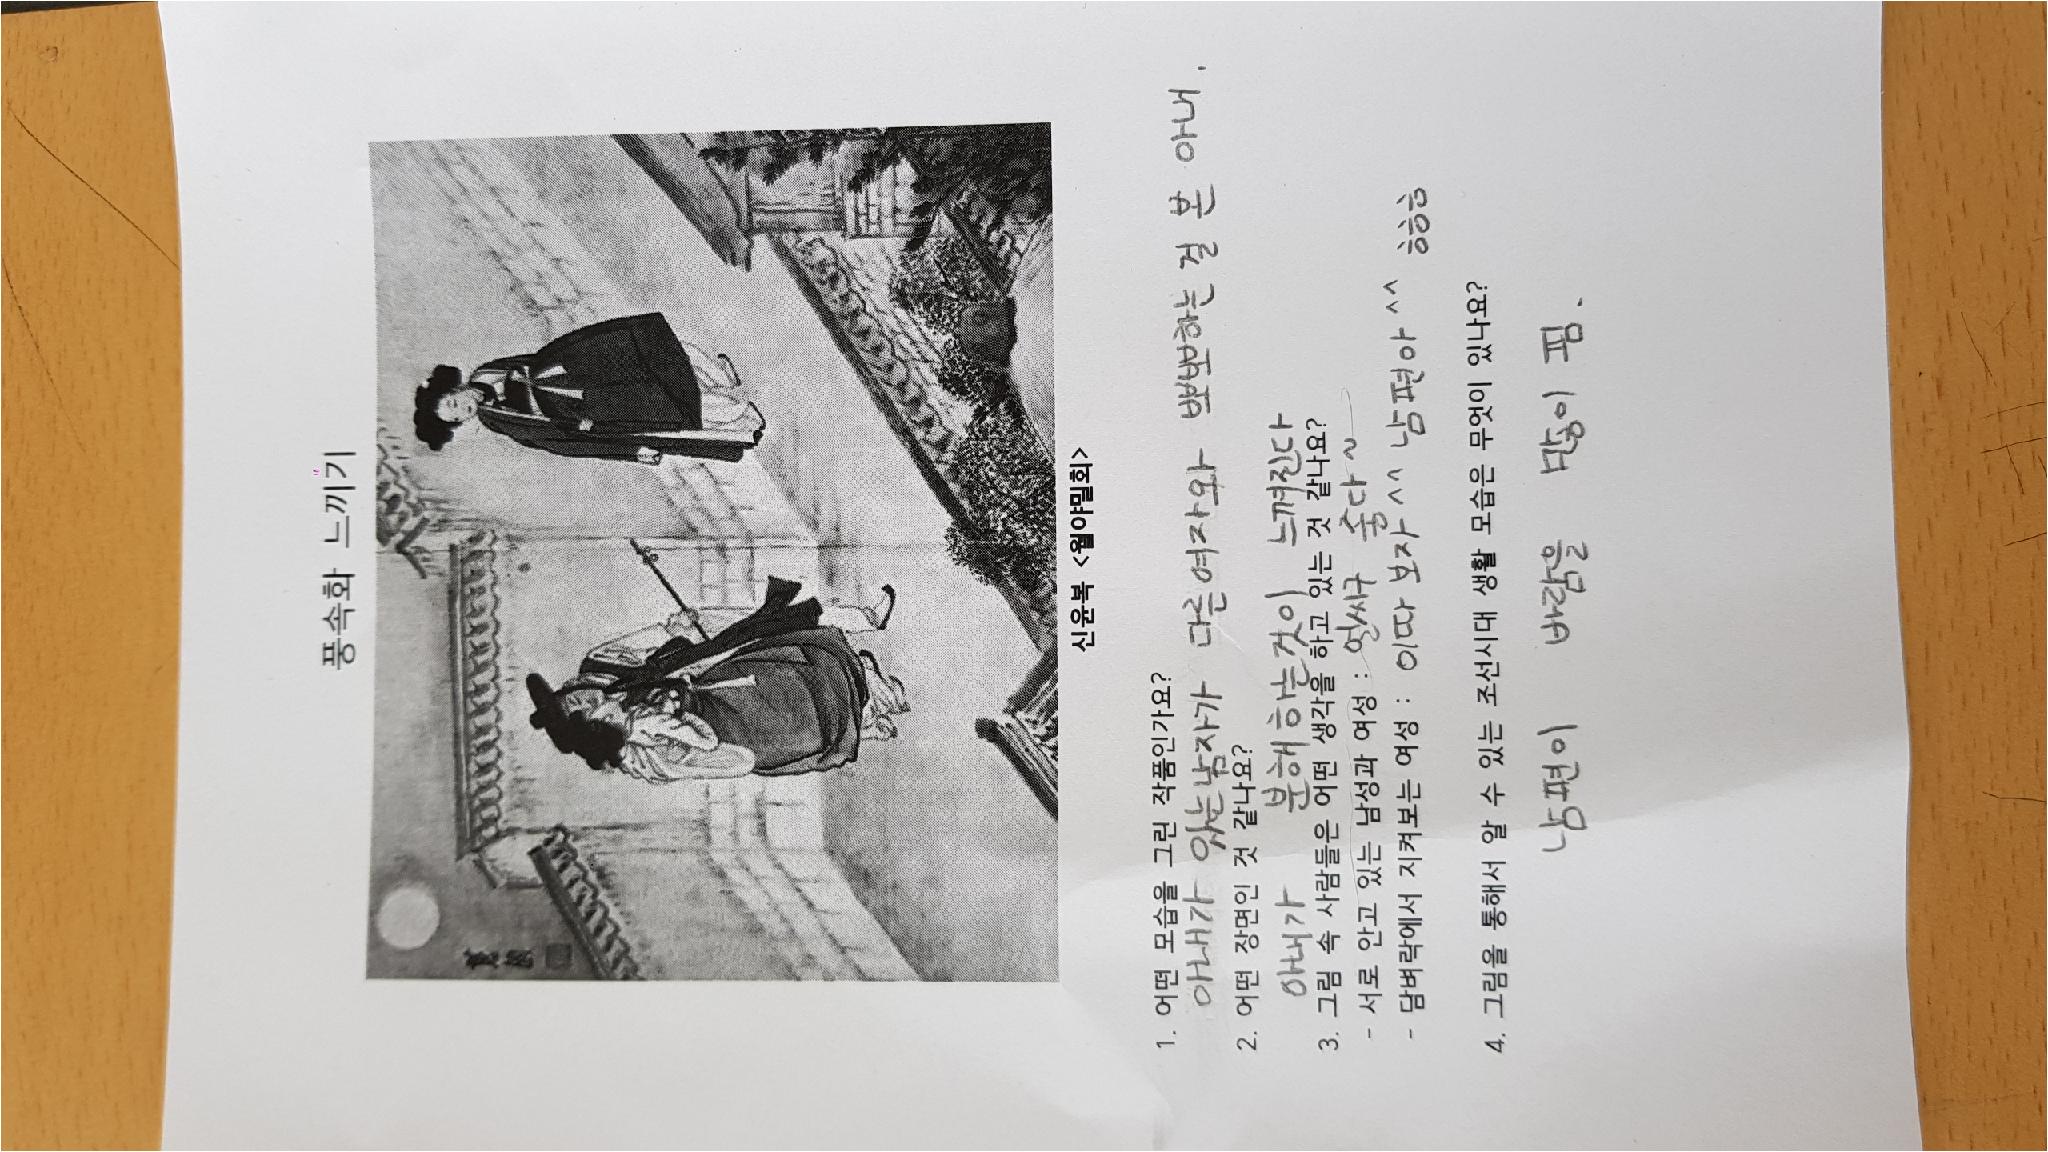 풍속화 느끼기
신윤복 <월야밀회>
1. 어떤 모습을 그린 작품인가요?
아내가 있는 남자가 다른여자와 뽀뽀하는 걸 본 아내.
2. 어떤 장면인 것 같나요?
아내가 분해하는것이 느껴진다
3. 그림 속 사람들은 어떤 생각을 하고 있는 것 같나요?
- 서로 안고 있는 남성과 여성 : 얼씨구 좋다~
- 담벼락에서 지켜보는 여성 : 이따 보자^^ 남편아^^ ㅎㅎㅎ
4. 그림을 통해서 알 수 있는 조선시대 생활 모습은 무엇이 있나요?
남편이 바람을 많이 핌.